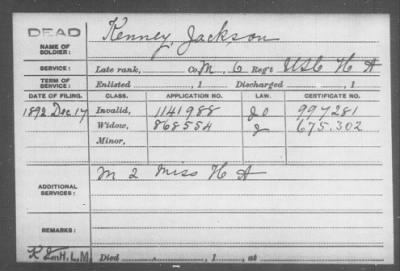 DEAD
NAME OF SOLDIER: Kenney, Jackson
SERVICE: Late rank, Co. M, 6 Reg't USC H A
TERM OF SERVICE: Enlisted , 1 Discharged , 1
DATE OF FILING. CLASS. APPLICATION NO. LAW. CERTIFICATE NO.
1892 Dec 17 Invalid, 1141988 997281
Widow, 868554 675.302
Minor,
ADDITIONAL SERVICES: M 2 Miss H A
REMARKS:
H.L.M. Died , 1 , at